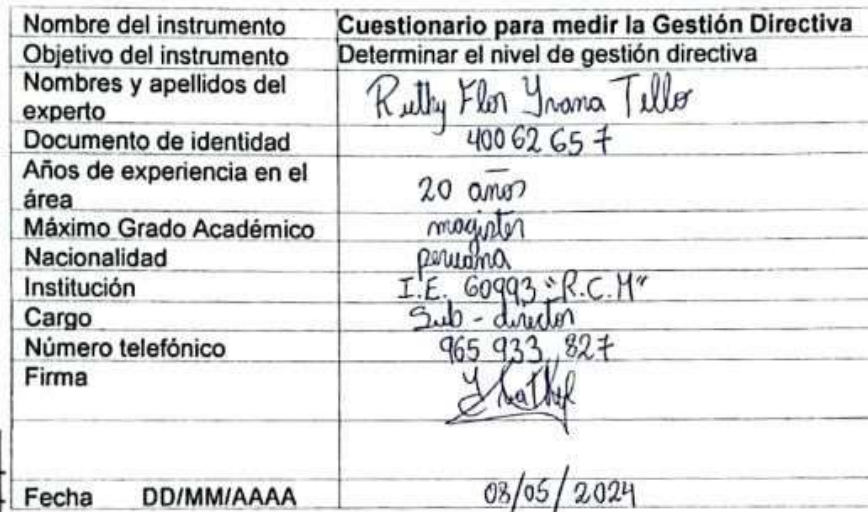 Nombre del instrumento Cuestionario para medir la Gestión Directiva
Objetivo del instrumento Determinar el nivel de gestión directiva
Nombres y apellidos del experto Ruthy Flor Yrama Tello
Documento de identidad 40062657
Años de experiencia en el área 20 años
Máximo Grado Académico magister
Nacionalidad peruana
Institución I.E. 60993 "R.C.M"
Cargo Sub-director
Número telefónico 965 933 827
Firma
Fecha DD/MM/AAAA 08/05/2024